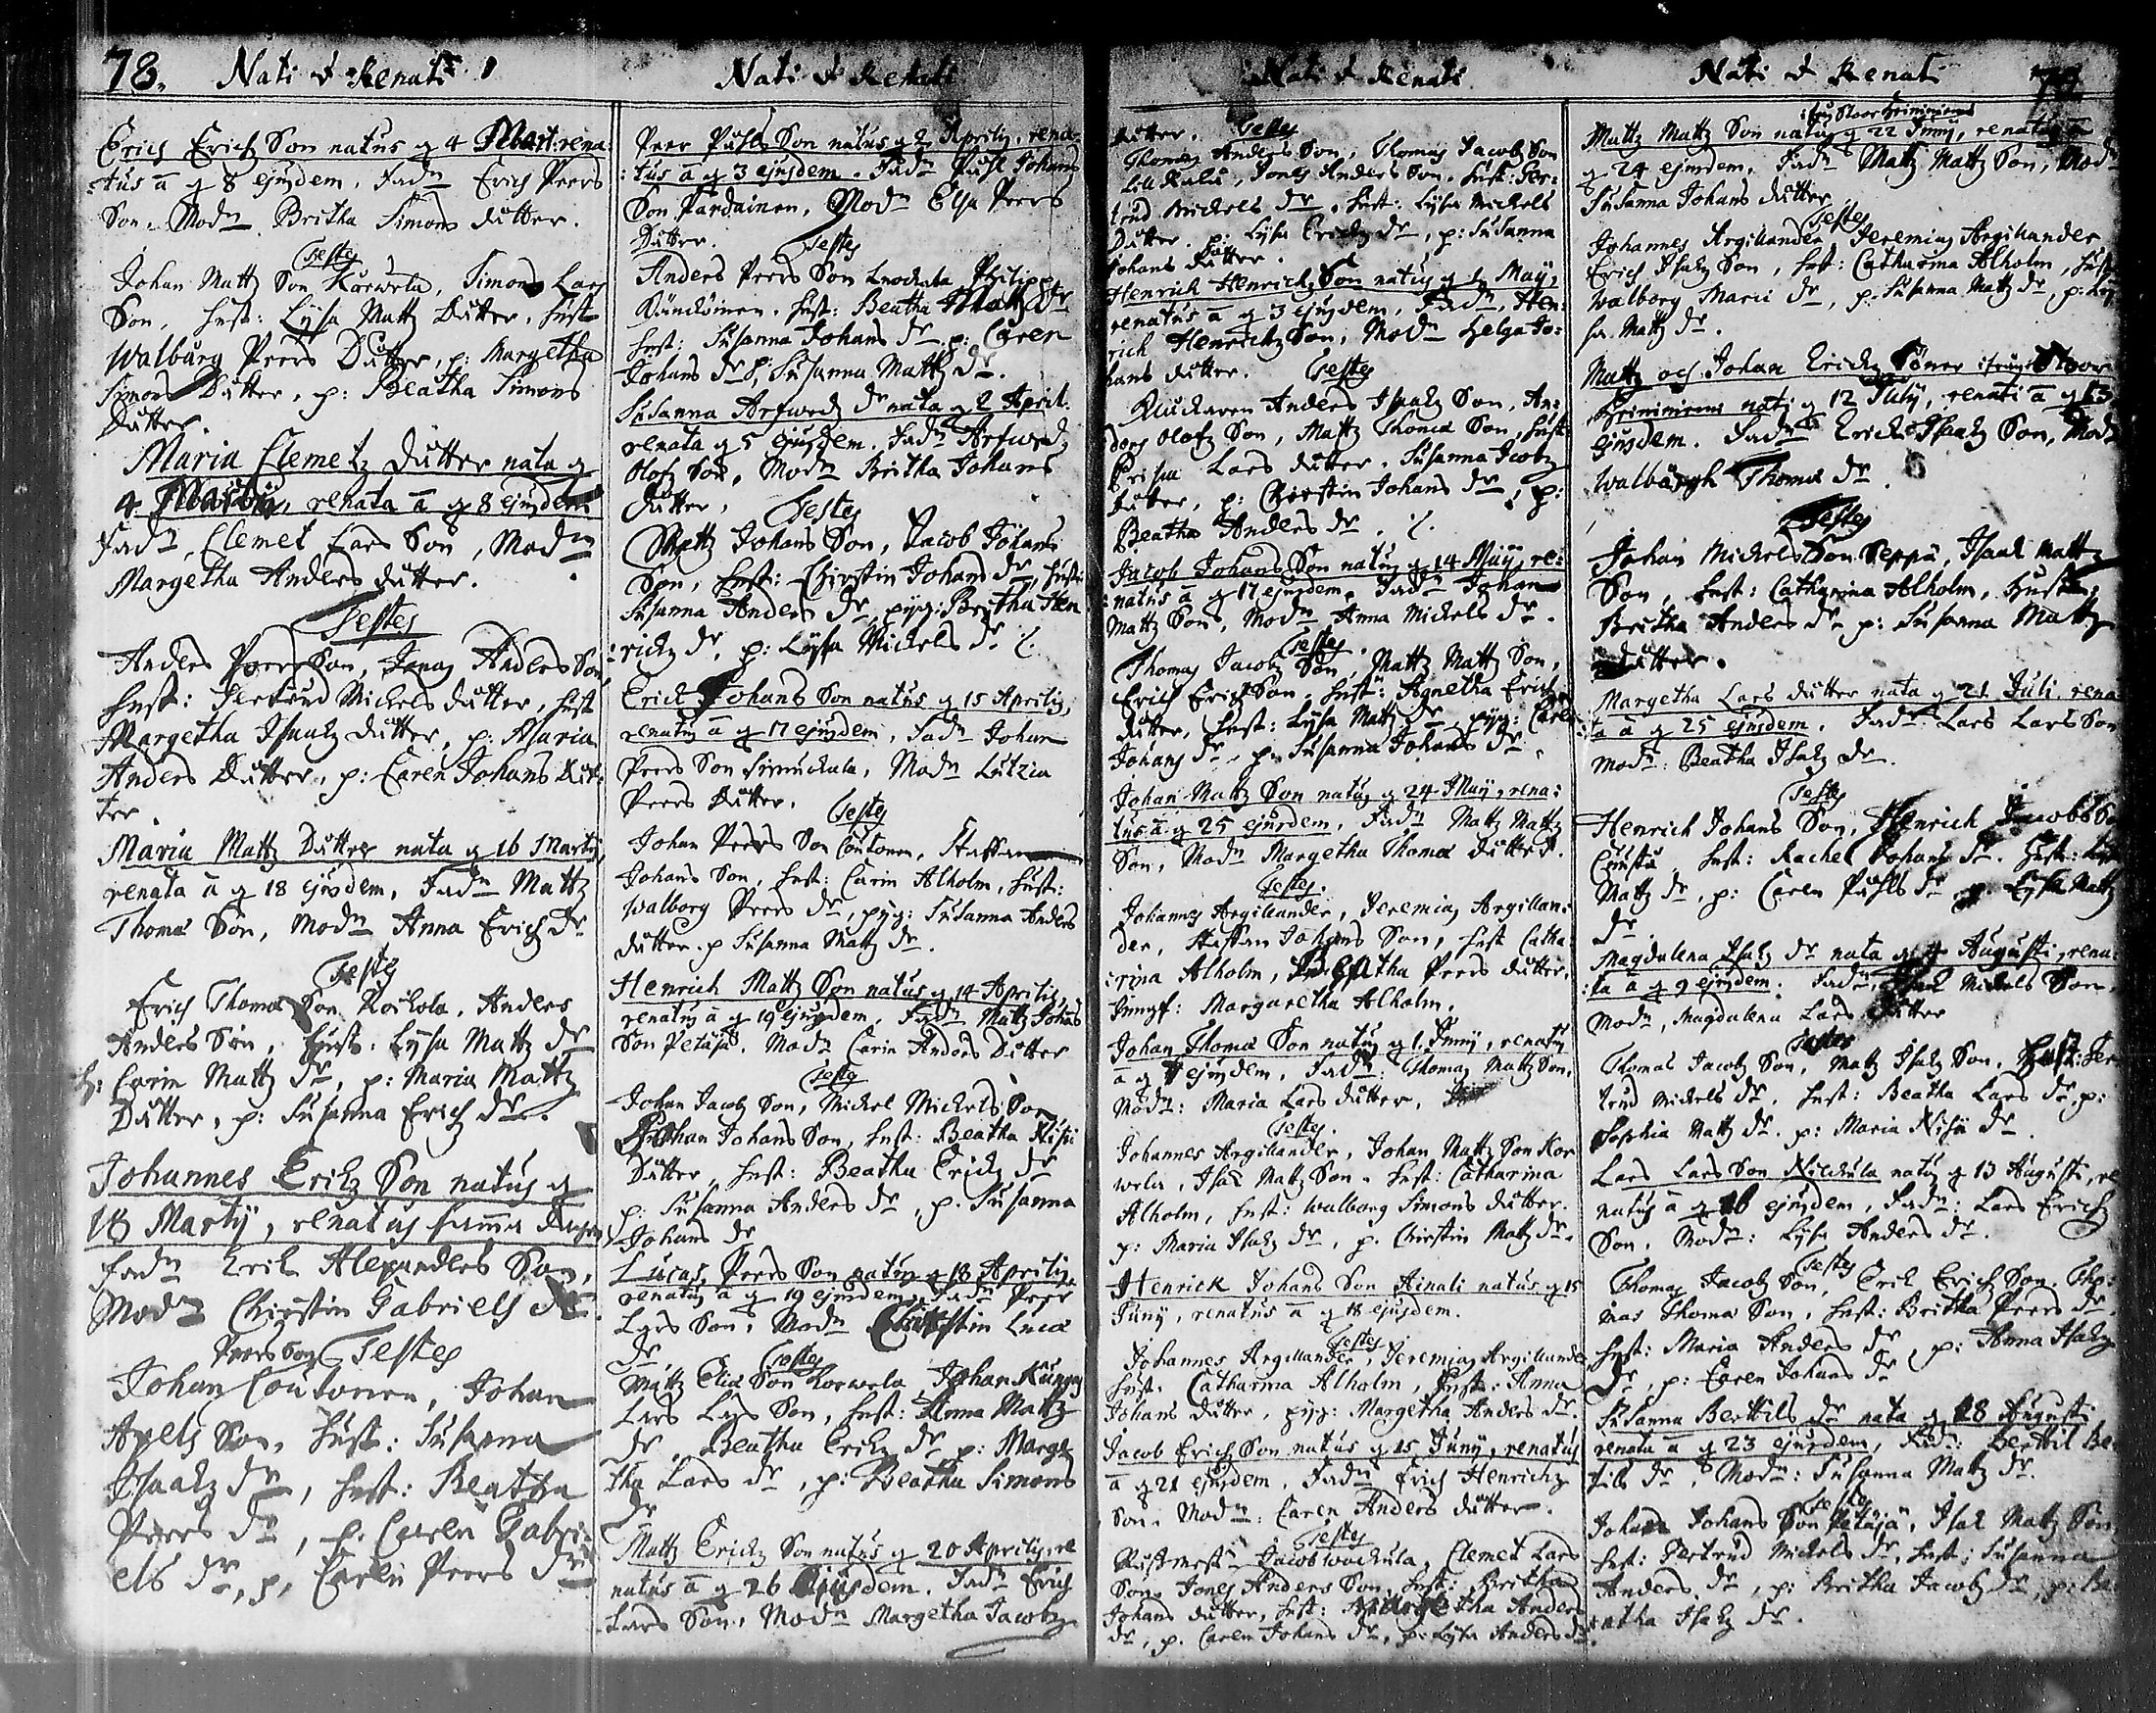 78. Nati & Renati
Erich Erich Son natus g 4 Mart: rena
:tus ā g 8 ejusdem. Fadn Erich Peers
Son. Modn Britha Simons dutter.
Testes
Johan Mattz Son Korwela, Simon Lars
Son, hust: Lysa Mattz Dutter, hust
Walburg Peers Dutter, p: Margetha
Simons Dutter, p: Beatha Simons
Dutter.
Maria Clemetz dutter nata g
4 Martij, renata ā g 8 ejusdem
Fadn, Clemet Lars Son, Modn
Margetha Anders dutter.
Testes
Anders Peers Son, Jonas Anders Son
hust: Gertrud Mickels dutter, hust
Margetha Isaakz dutter, p: Maria
Anders Dutter, p: Caren Johans Dut:
ter.
Maria Mattz Dutter nata g 16 Martij
renata ā g 18 ejusdem, Fadn Mattz
Thomæ Son, Modn Anna Erich dr
Testes
Erich Thomæ Son Kockola, Anders
Anders Son, hust: Lysa Mattz dr
h: Carin Mattz dr, p: Maria Mattz
Dutter, p: Susanna Erich dr.
Johannes Erikz Son natus g
18 Martij, renatus samma dagen
Fadn Erik Alexanders Son,
Modn Chirstin Gabriels dr.
Peers Son Testes
Johan Coutonen, Johan
Axels Son, hust: Susanna
Isaakz dr, hust: Beatha
Peers dr, p. Caren Gabri:
els dr, p, Caren Peers dr
Nati & Renati
Peer Påhls Son natus g 2 Aprilis, rena
:tus ā g 3 ejusdem. Fadn Påhl Johans
Son Pardainen, Modn Elsa Peers
Dutter. Testes
Anders Peers Son, Philippz
hust: Beatha dr
hust: Susanna Johans dr p: Caren
Johans dr p: Susanna Mattz dr.
Susanna Arfwedz dr nata g 2 April.
renata g 5 ejusdem. Fadn Arfwedz
Olofz Son, Modn Britha Johans
dutter, Testes
Mattz Johans Son, Jacob Johans
Son, hust: Chirstin Johans dr hust:
Susanna Anders dr, pyg: Britha Hen
:richz dr, p: Lysa Mickels dr
Erick Johans Son natus g 15 Aprilis,
renatus ā g 17 ejusdem, Fadn Johan
Peers Son Simuckala, Modn Lutzia
Peers Dutter. Testes
Johan Peers Son Coutonen, Staffan
Johans Son, hust: Carin Alholm, hust:
Walborg Peers dr, pyg: Susanna Anders
dutter. p Susanna Mattz dr.
Henrich Mattz Son natus g 14 Aprilis,
renatus ā g 19 ejusdem, Fadn Mattz Johans
Son Petäjä. Modn Carin Anders Dutter
Testes
Johan Jacobz Son, Mickel Mickels Son
Johan Johans Son, hust: Beatha
Dutter, hust: Beatha Erickz dr
p: Susanna Anders dr, p. Susanna
Johans dr
Lucas Peers Son natus g 18 Aprilis
renatus ā g 19 ejusdem, Fadn Peer
Lars Son, Modn Chirstin Lucæ
dr Testes
Mattz Eliæ Son Korwela, Johan
Lars Lars Son, hust: Anna Mattz
dr. Beatha Erickz dr p: Marge
tha Lars dr, p: Beatha Simons
dr
Mattz Erickz Son natus g 20 Aprilis, re
natus ā g 26 Ejusdem. Fadn Erich
Lars Son, Modn Margetha Jacobz
Nati & Renati
dutter. Testes
Thomas Anders Son, Thomas Jacobz Son
Jonas Anders Son. hust: Ger:
trud Mickels dr, hust: Lysa Mickels
Dutter. p: Lysa Erickz dr, p: Susanna
Johans dutter.
Henrich Henrichz Son natus g 1 Maij,
renatus ā g 3 ejusdem, Fadn, Hen:
rich Henrichz Son, Modn Helga Jo:
hans dutter. Testes
Kluckaren Anders Isaakz Son, An:
ders Olofz Son, Mattz Thomæ Son, hust
Lars dutter. Susanna Jacobz
dutter, p: Chirstin Johans dr, p:
Beatha Anders dr.
Jacob Johans Son natus g 14 Maij, re:
:natus ā g 17 ejusdem. Fadn Johan
Mattz Son, Modn Anna Mickels dr.
Testes.
Thomas Jacobz Son, Mattz Mattz Son,
Erich Erich Son. hust: Agnetha Erichz
dutter, hust: Lysa Mattz dr, pyg: Caren
Johans dr, p. Susanna Johans dr.
Johan Mattz Son natus g 24 Maij, rena:
tus ā g 25 ejusdem, Fadn Mattz Mattz
Son, Modn Margetha Thomæ dutter.
Testes.
Johannes Argillander, Jeremias Argillan:
der, Staffan Johans Son, hust Catha:
:rina Alholm, Beatha Peers dutter,
Jungf: Margaretha Alholm.
Johan Thomæ Son natus g 1. Junij, renatus
ā g ejusdem, Fadn: Thomas Mattz Son,
Modn: Maria Lars dutter.
Testes.
Johannes Argillander, Johan Mattz Son Kor
wela, Isak Mattz Son. hust: Catharina
Alholm, hust: Walborg Simons dutter.
p: Maria Isakz dr, p. Chirstin Mattz dr.
Henrick Johans Son Ainali natus g 15
Junij, renatus ā g 18 ejusdem.
Testes
Johannes Argillander, Jeremias Argillander
hust. Catharina Alholm, hust: Anna
Johans dutter, pyg: Margetha Anders dr.
Jacob Erich Son natus g 15 Junij, renatus
ā g 21 ejusdem, Fadn Erich Henrichz
Son. Modn: Caren Anders dutter.
Testes
Jacob, Clemet Lars
Son, Jonas Anders Son, hust: Britha
Johans dutter, hust: Margetha Anders
dr, p. Caren Johans dr, p: Lysa Anders dr.
Nati & Renati
Mattz Mattz Son natus g 22 Junij, renatus ā
g 24 ejusdem, Fadn Mattz Mattz Son, Modn
Susanna Johans dutter
Testes
Johannes Argillander, Jeremias Argillander
Erich Isakz Son, hust: Catharina Alholm, hust:
Walborg Marci dr, p: Susanna Mattz dr, p: Ly
sa Mattz dr.
Mattz och Johan Erickz Söner
nati g 12 Julij, renati ā g 13
ejusdem. Fadn Erick Isaakz Son, Modn
Walborgh Thomæ dr.
Testes
Johan Mickels Son Seppä, Isaak Mattz
Son, hust: Catharina Alholm, hust:
Britha Anders dr p: Susanna Mattz
Dutter.
Margetha Lars dutter nata g 21 Juli. rena
:ta ā g 25 ejusdem. Fadn Lars Lars Son
Modn: Beatha Isakz dr.
Testes
Henrich Johans Son, Henrich Jacobs Son
hust: Rachel Johans dr. hust: Lysa
Mattz dr, p: Caren Påhls dr p: Lysa Mattz
dr.
Magdalena Isakz dr nata g 4 Augusti, rena:
:ta ā g 9 ejusdem. Fadn, Isak Mickels Son.
Modn, Magdalena Lars dutter
Testes
Thomas Jacobz Son, Mattz Isakz Son, hust: Ger
trud Mickels dr. hust: Beatha Lars dr, p:
Sophia Mattz dr. p: Maria dr.
Lars Lars Son natus g 13 Augusti, re
natus ā g 16 ejusdem, Fadn: Lars Erichz
Son, Modn: Lysa Anders dr.
Testes
Thomas Jacobz Son, Erik Erich Son. Tho:
mas Thomæ Son, hust: Britha Peers dr.
hust: Maria Anders dr, p: Anna Isakz
dr, p: Caren Johans dr
Susanna Bertils dr nata g 18 Augusti
renata ā g 23 ejusdem, Fadn: Bertil Be:
tils dr, Modn: Susanna Mattz dr.
Testes
Johan Johans Son Petäjä, Isak Mattz Son
hust: Gertrud Mickels dr, hust: Susanna
Anders dr, p: Britha Jacobz dr, p: Be:
atha Isakz dr.